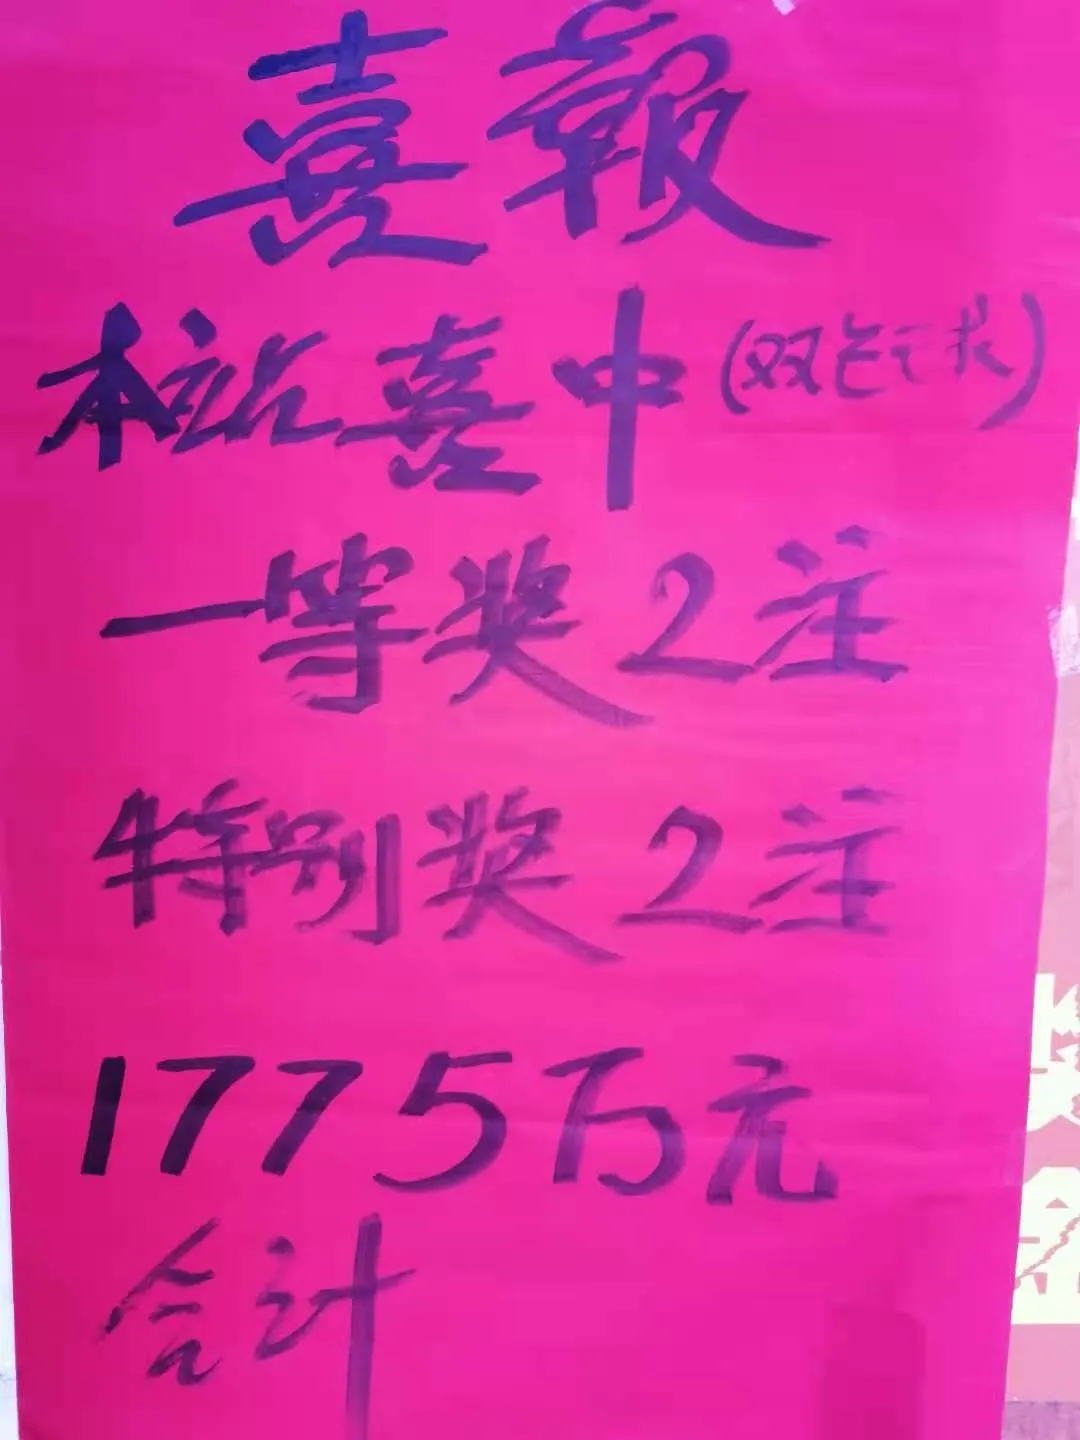 喜報
本站喜中(双色球)
一等奖2注
特别奖2注
1775万元
合计